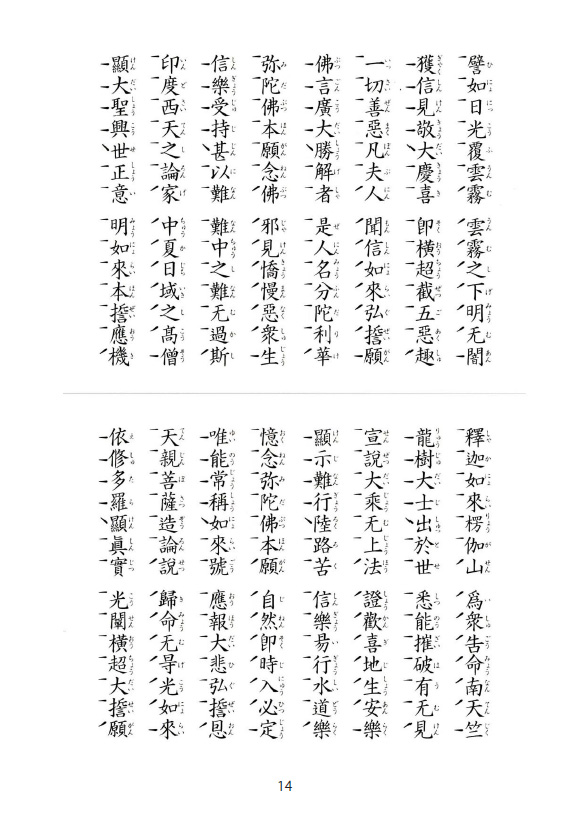 譬如日光覆雲霧 雲霧之下明无闇
獲信見敬大慶喜 卽橫超截五惡趣
一切善惡凡夫人 聞信如來弘誓願
佛言廣大勝解者 是人名分陀利華
弥陀佛本願念佛 邪見憍慢惡衆生
信樂受持甚以難 難中之難无過斯
印度西天之論家 中夏日域之髙僧
顯大聖興世正意 明如來本誓應機
釋迦如來楞伽山 爲衆告命南天竺
龍樹大士出於世 悉能摧破有无見
宣說大乘无上法 證歡喜地生安樂
顯示難行陸路苦 信樂易行水道樂
憶念弥陀佛本願 自然卽時入必定
唯能常稱如來號 應報大悲弘誓恩
天親菩薩造論說 歸命无㝵光如來
依修多羅顯眞實 光闡橫超大誓願
14